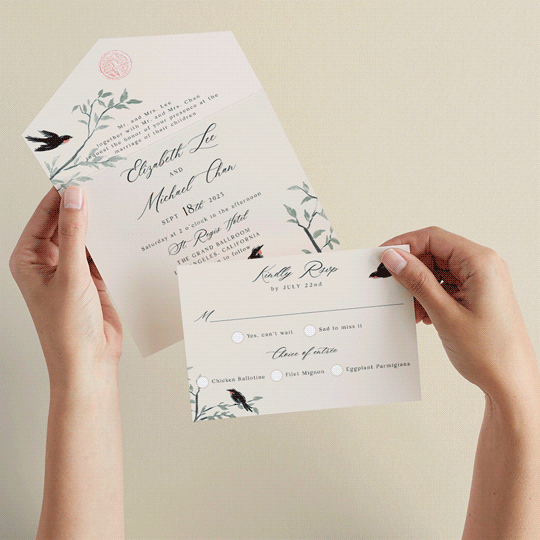 Mr. and Mrs. Lee
together with Mr. and Mrs. Chan
request the honor of your presence at the
marriage of their children
Elizabeth Lee
AND
Michael Chan
SEPT 18th 2025
Saturday at 2 o'clock in the afternoon
St. Regis Hotel
THE GRAND BALLROOM
ANGELES, CALIFORNIA
to follow
Kindly Rsvp
by JULY 22nd
M
Yes, can't wait
Sad to miss it
Choice of entrée
Chicken Ballotine
Filet Mignon
Eggplant Parmigiana